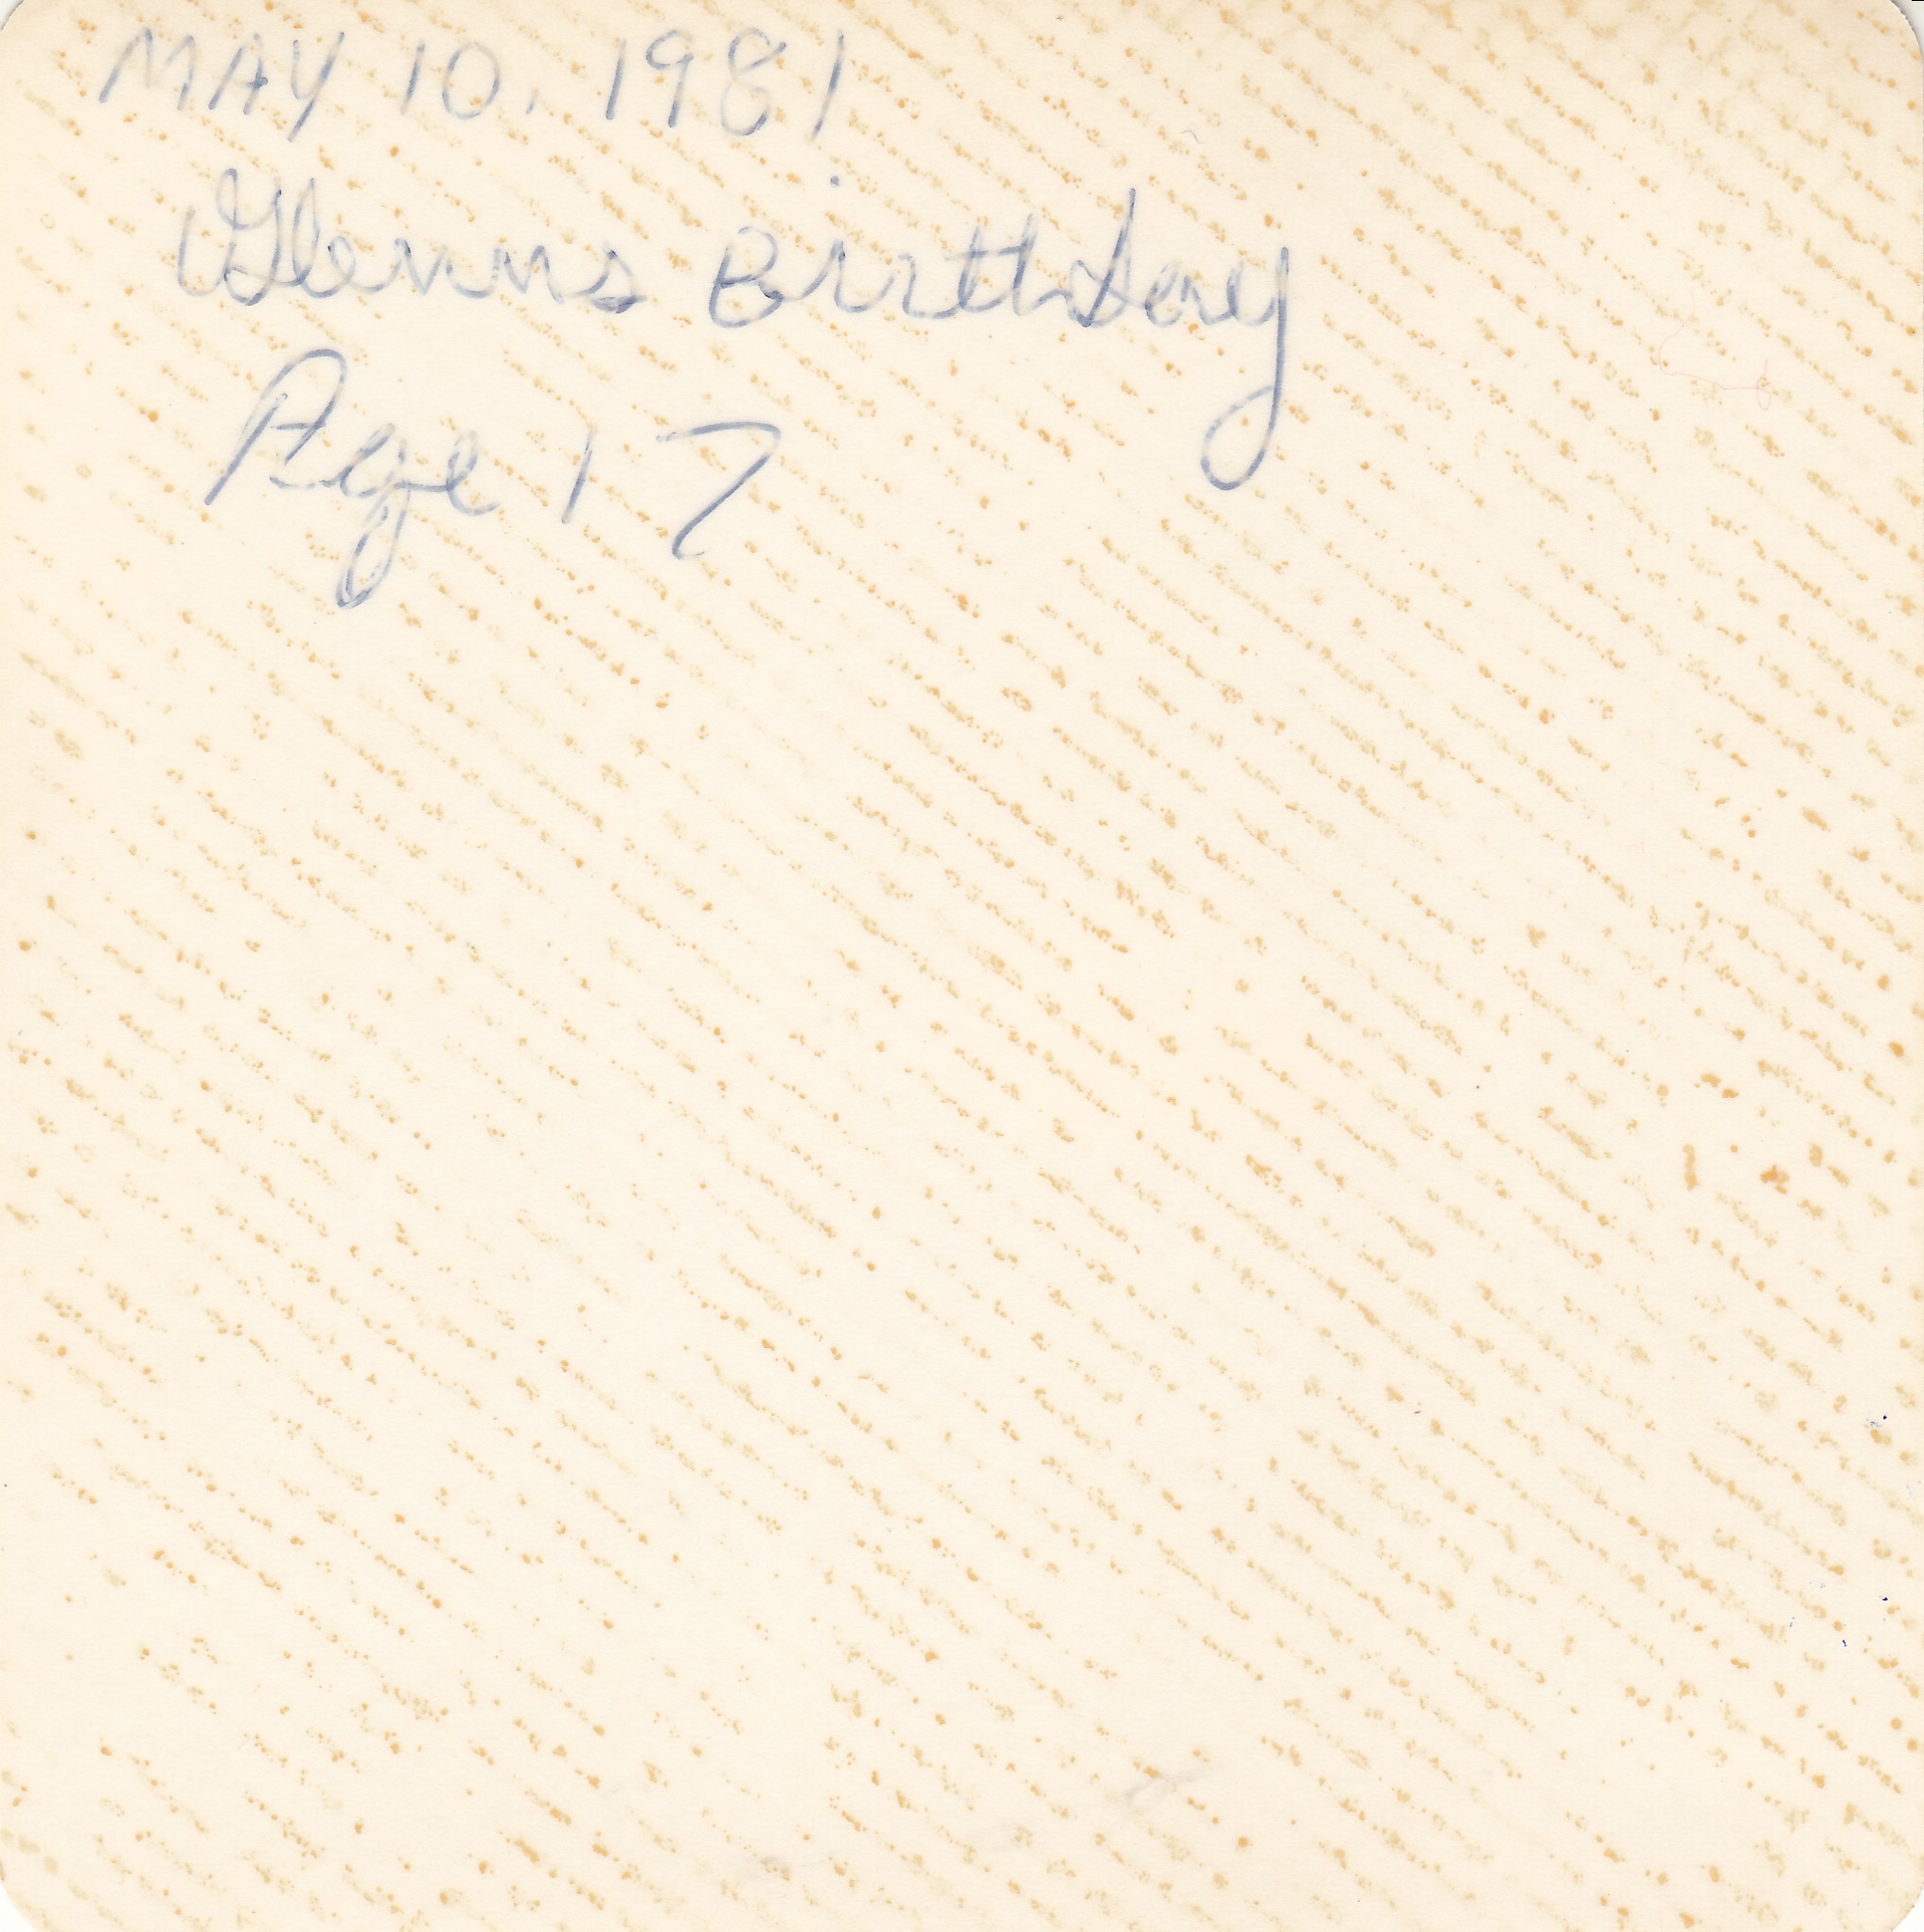 MAY 10, 1981
Glenns Birthday
Age 17